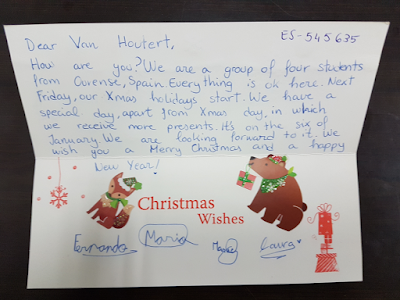 Dear Van Houtert,
ES-545635
How are you? We are a group of four students
from Ourense, Spain. Everything is ok here. Next
Friday, our Xmas holidays start. We have a
special day, apart from Xmas day, in which
we receive more presents. It's on the six of
January. We are looking forward to it. We
wish you a Merry Christmas and a happy
New Year!
Christmas
Wishes
Fernando María Laura